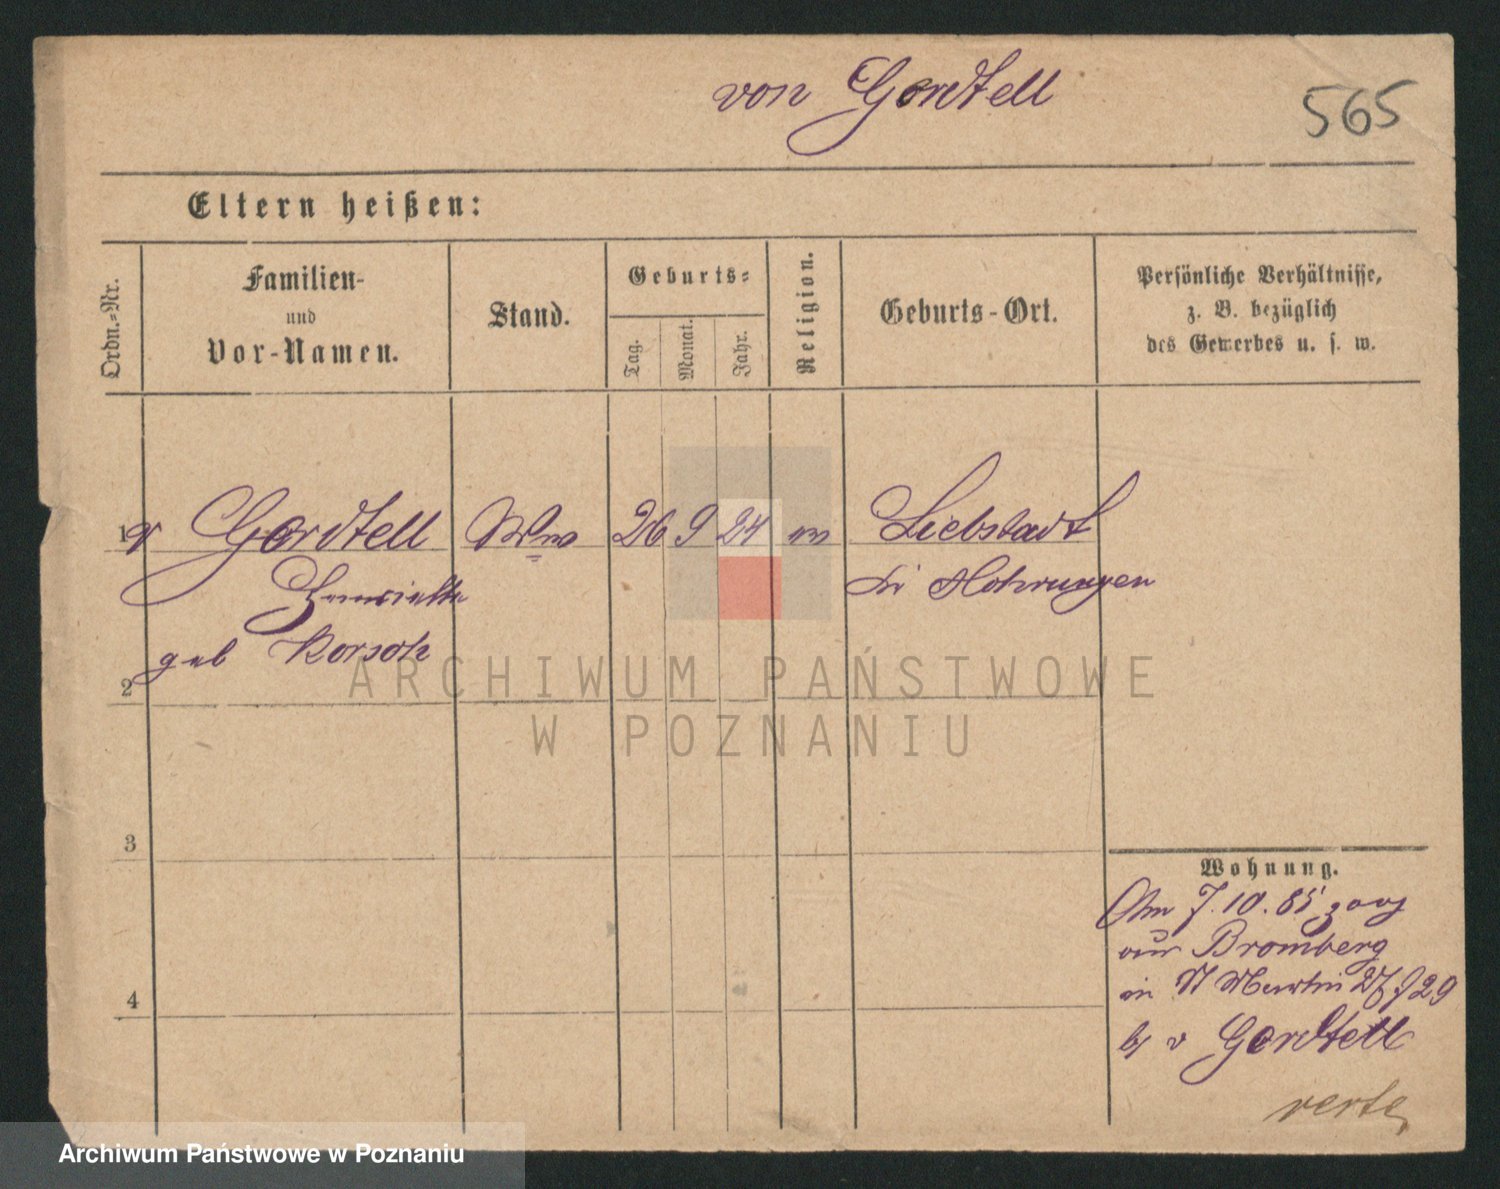 von Gordtell
565
Eltern heißen:
Ordn.-Nr.
Familien-
und
Vor-Namen.
Stand.
Geburts-
Tag.
Monat.
Jahr.
Religion.
Geburts-Ort.
Persönliche Verhältnisse,
z. B. bezüglich
des Gewerbes u. s. w.
1 v Gordtell Wwe 26 9 24 ev Liebstadt
Henriette Kr Mohrungen
geb Korsch
2
3
4
Wohnung.
Am 7.10.85 zog
aus Bromberg
in St Martin 29
b/ v Gordtell
verte
ARCHIWUM PAŃSTWOWE
W POZNANIU
Archiwum Państwowe w Poznaniu